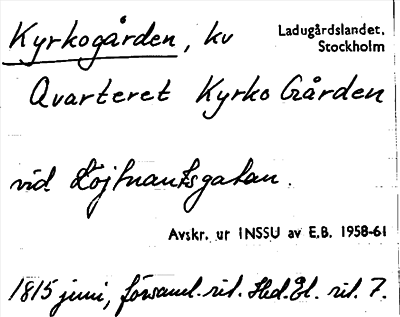 Kyrkogården, kv
Ladugårdslandet,
Stockholm
Qvarteret Kyrko Gården
vid Löjtnantsgatan.
Avskr. ur INSSU av E.B. 1958-61
1815 juni, församl. rit. Hed. El. rit. 7.